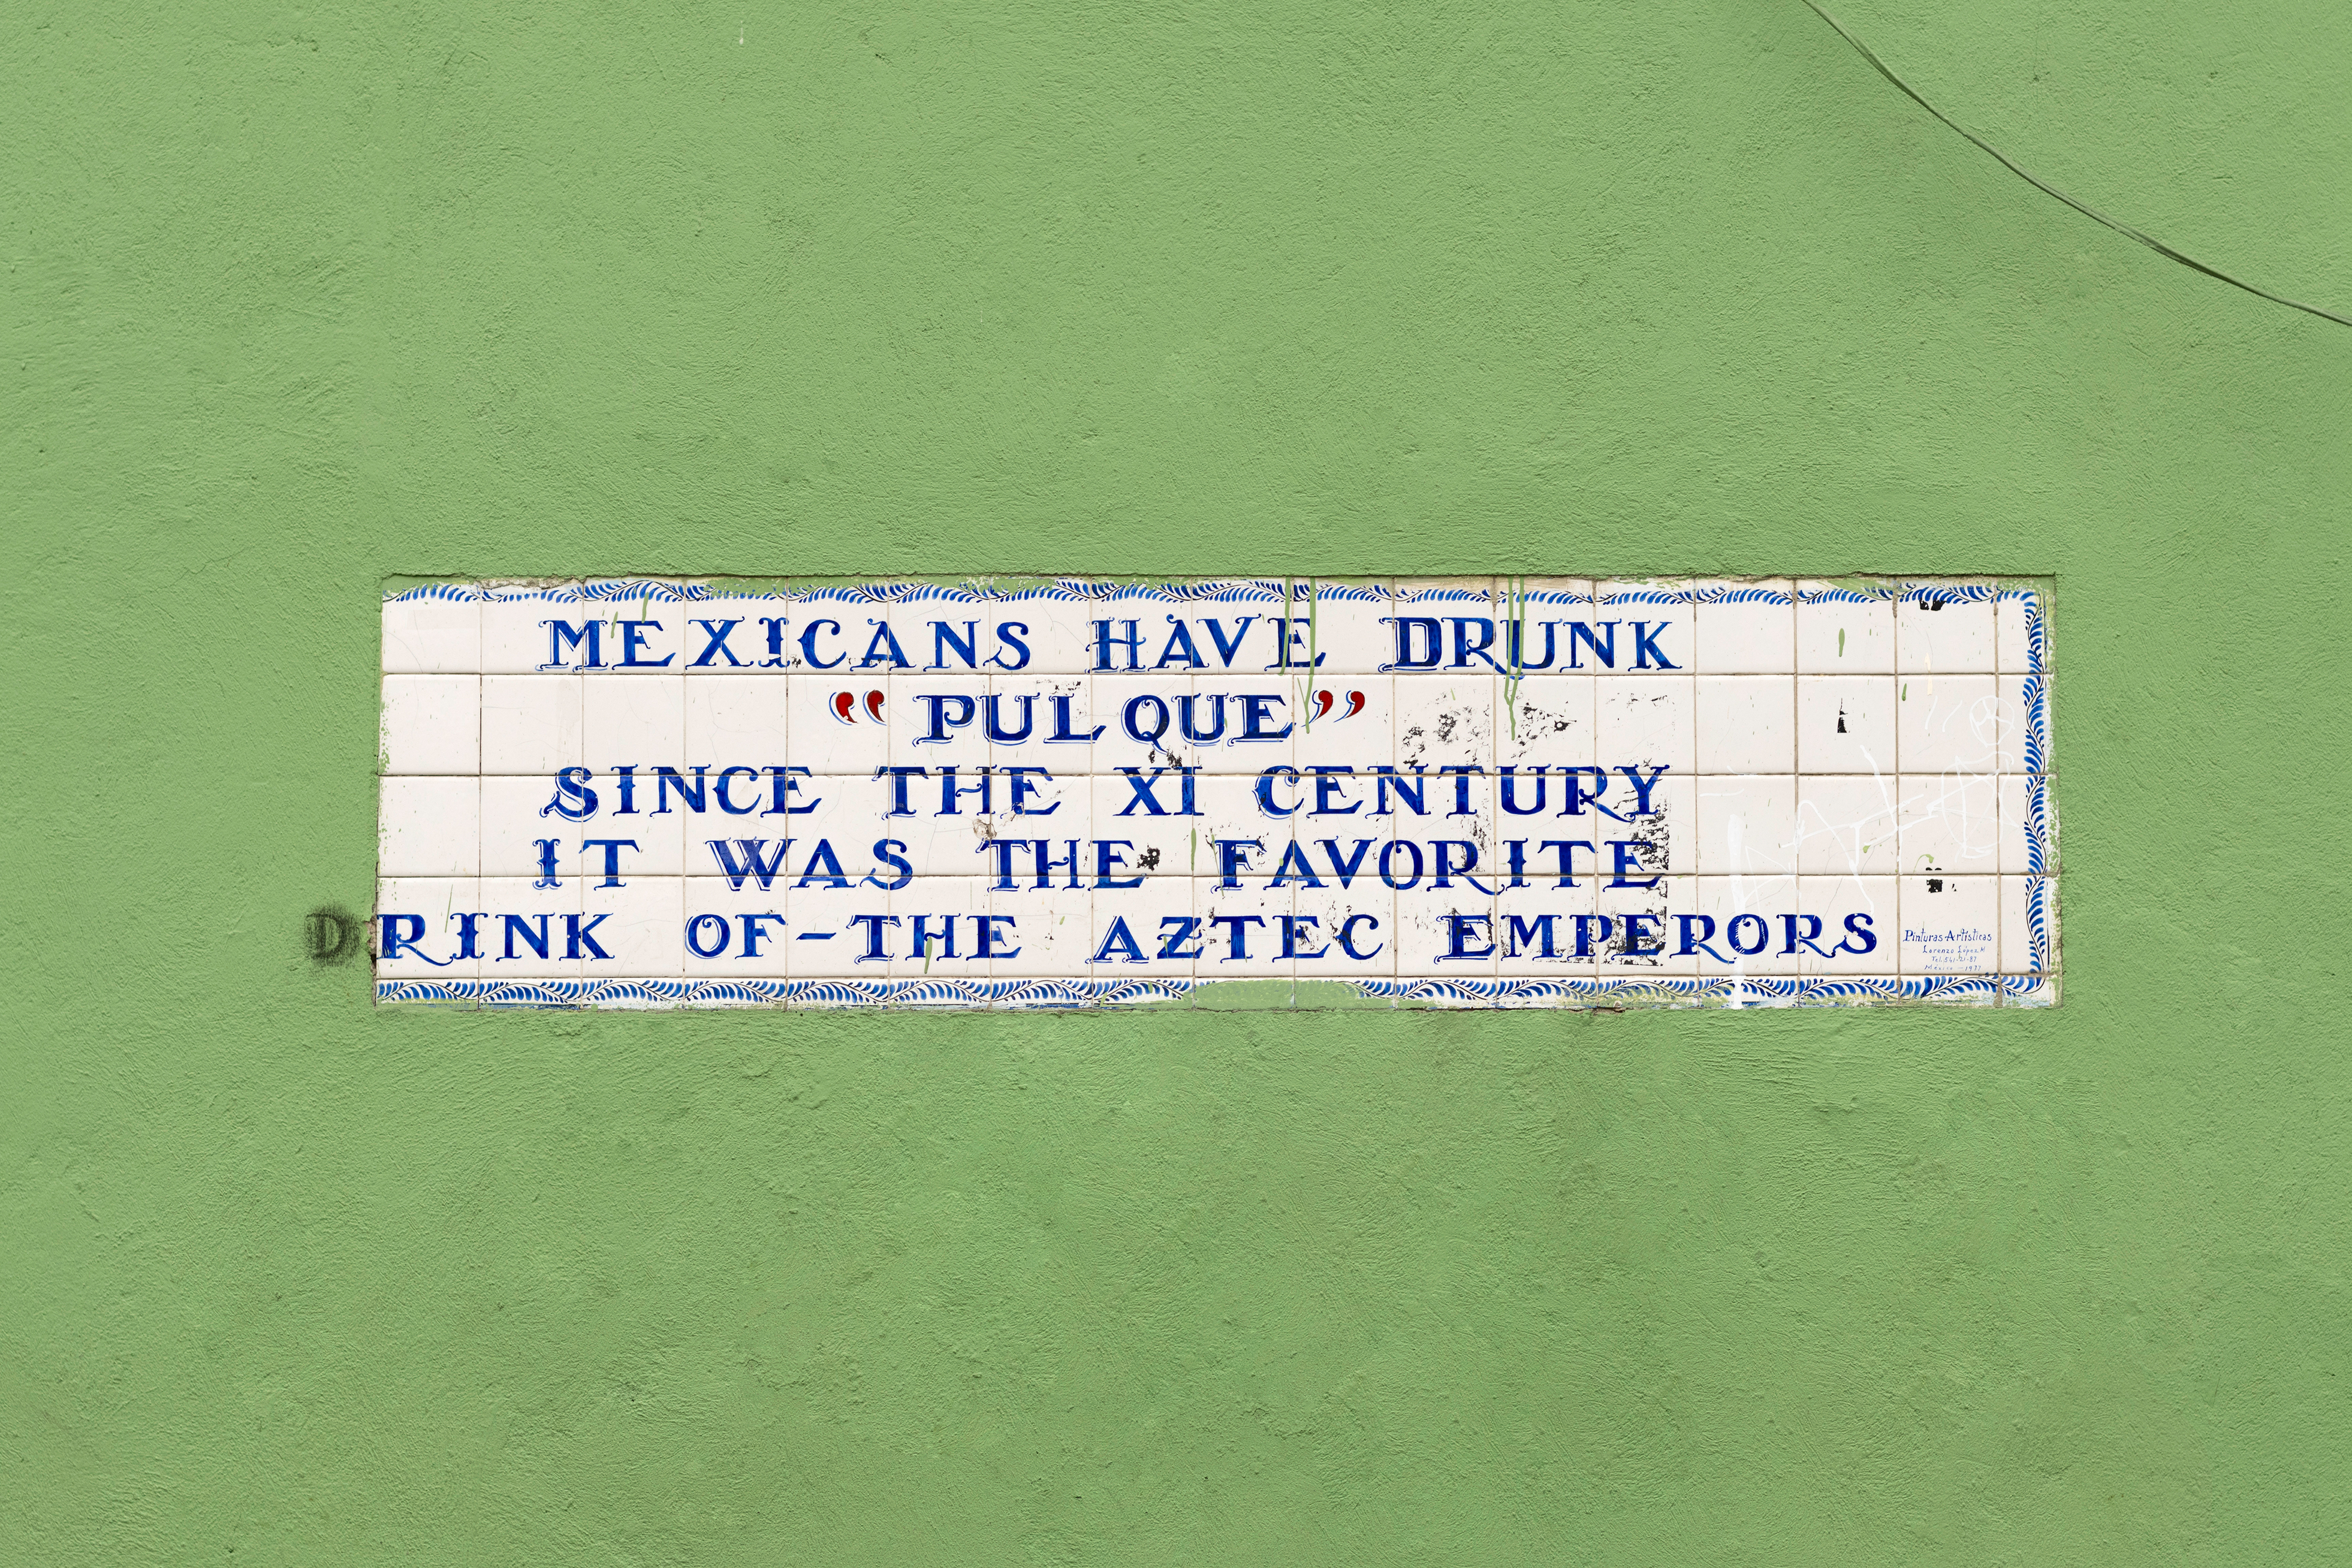 MEXICANS HAVE DRUNK
“PULQUE”
SINCE THE XI CENTURY
IT WAS THE FAVORITE
DRINK OF-THE AZTEC EMPERORS
Pinturas-Artísticas
Lorenzo López
México